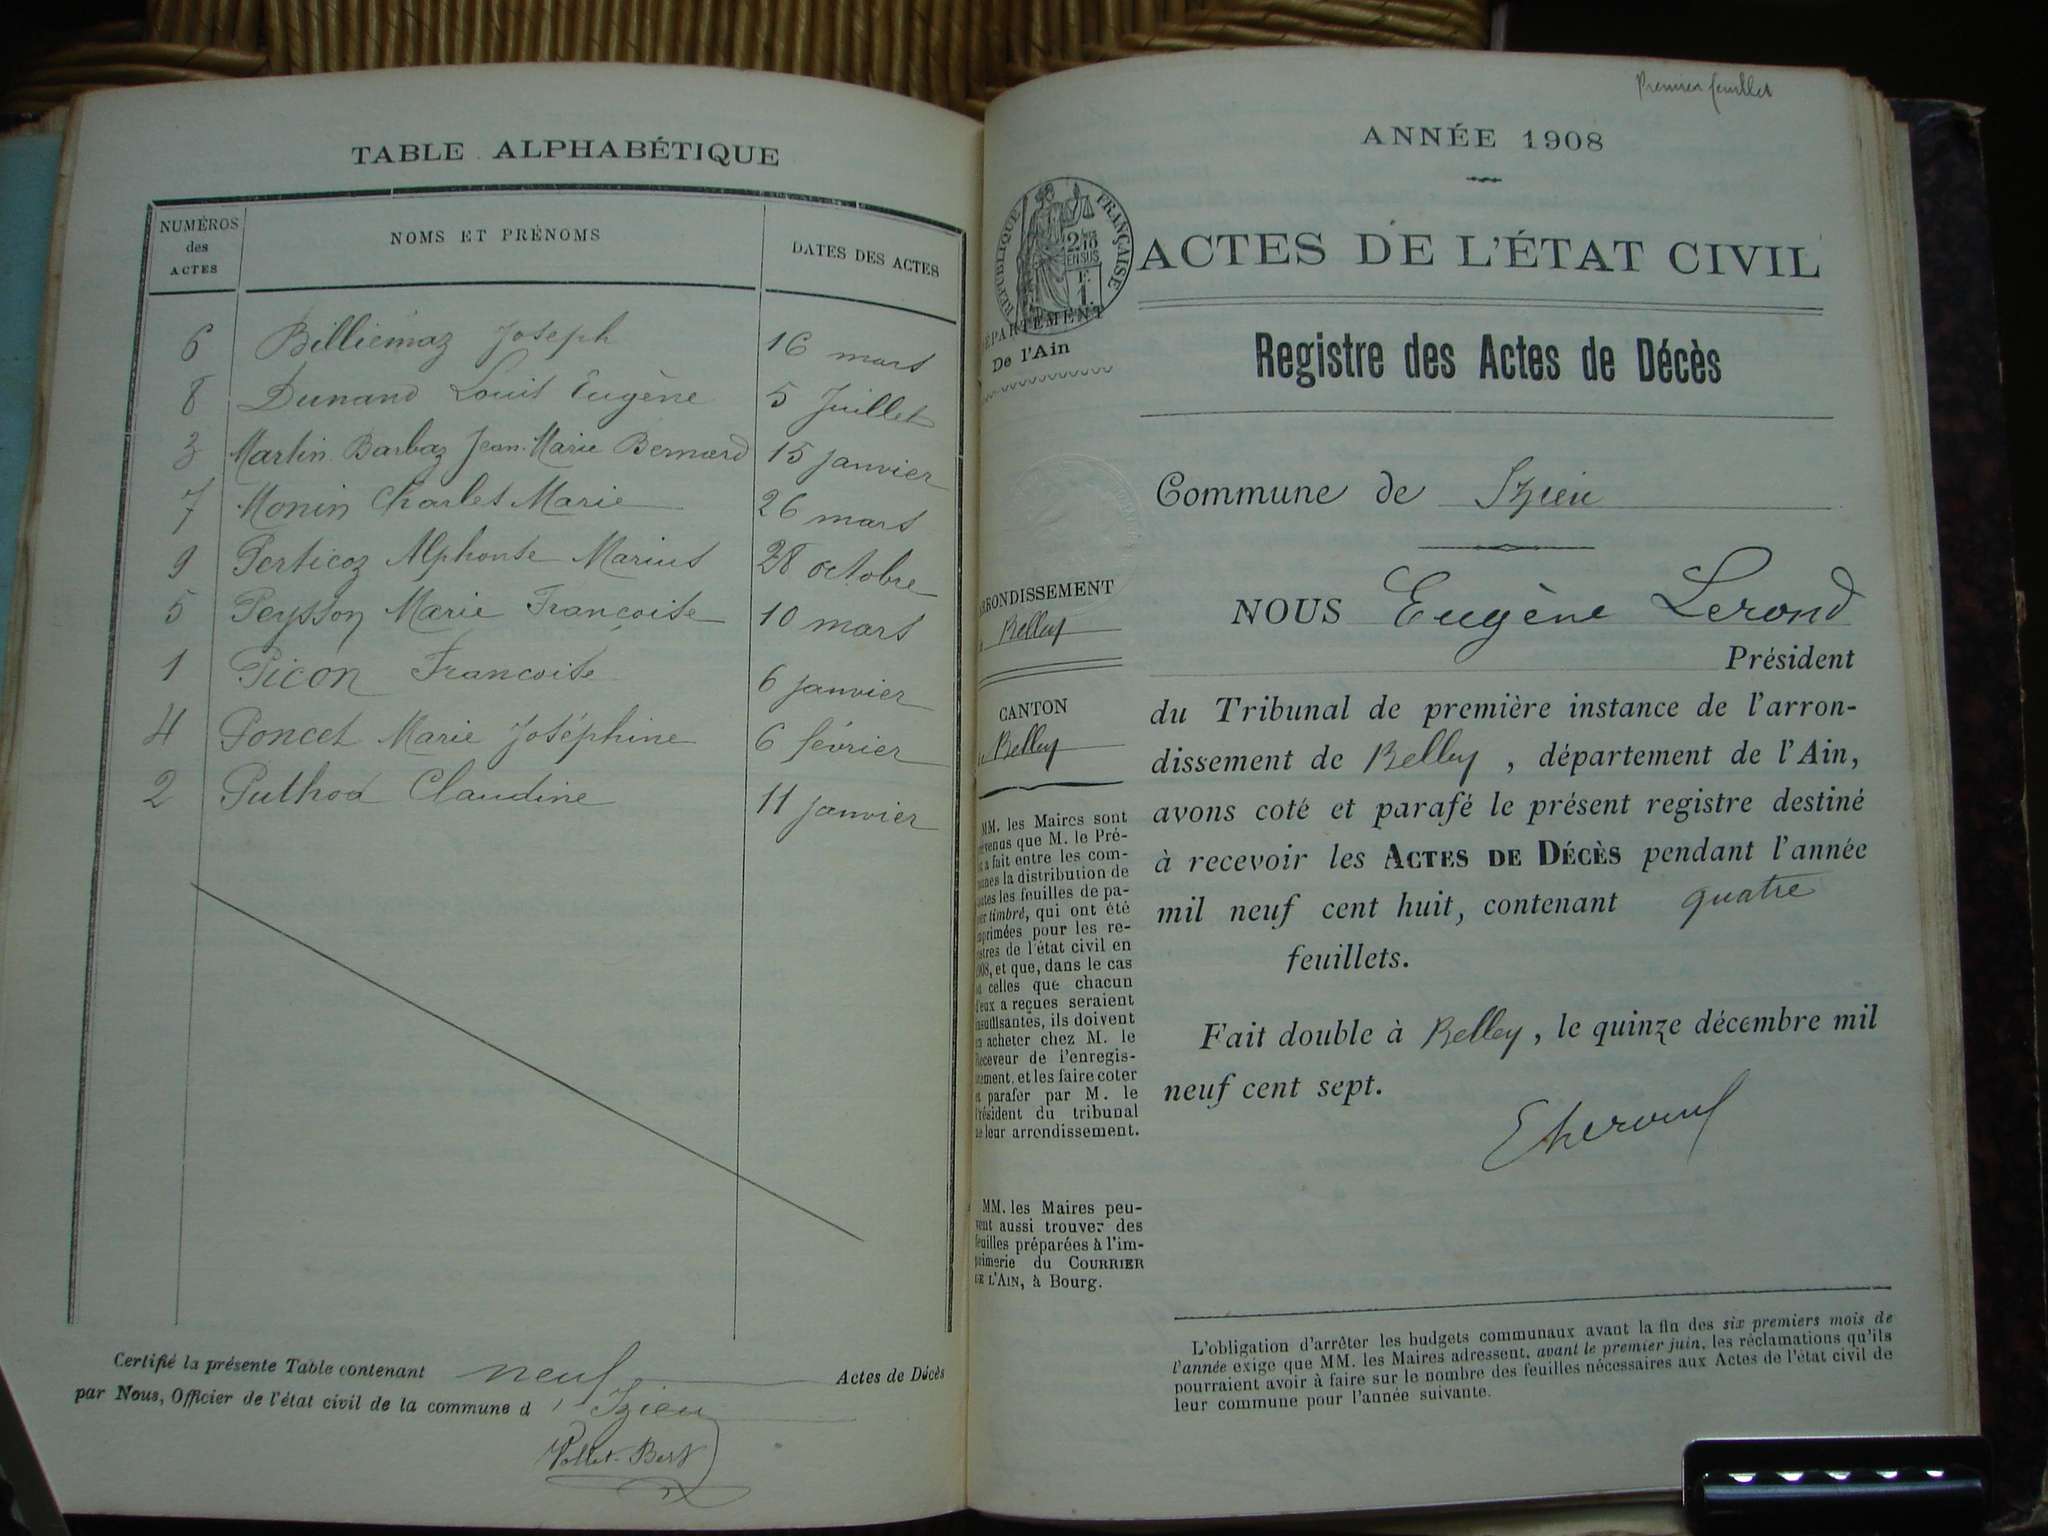 TABLE ALPHABÉTIQUE
NUMÉROS des ACTES NOMS ET PRÉNOMS DATES DES ACTES
6 Billiémaz Joseph 16 mars
8 Dunand Louis Eugène 5 Juillet
3 Martin Barbaz Jean-Marie Bernard 15 janvier
7 Monin Charles Marie 26 mars
9 Perticoz Alphonse Marius 28 octobre
5 Peysson Marie Francoise 10 mars
1 Picon Francoise 6 janvier
4 Poncet Marie Joséphine 6 février
2 Puthod Claudine 11 janvier
Certifié la présente Table contenant neuf Actes de Décès
par Nous, Officier de l'état civil de la commune d'Izieu
Premier feuillet
ANNÉE 1908
RÉPUBLIQUE FRANÇAISE
2/10 EN SUS
F. 1.
ACTES DE L'ÉTAT CIVIL
DÉPARTEMENT
De l'Ain
Registre des Actes de Décès
Commune de Izieu
ARRONDISSEMENT
Belley
CANTON
Belley
NOUS Eugène Lerond
Président
du Tribunal de première instance de l'arron-
dissement de Belley, département de l'Ain,
avons coté et parafé le présent registre destiné
à recevoir les ACTES DE DÉCÈS pendant l'année
mil neuf cent huit, contenant quatre
feuillets.
Fait double à Belley, le quinze décembre mil
neuf cent sept.
MM. les Maires sont
prévenus que M. le Pré-
fet a fait entre les com-
munes la distribution de
toutes les feuilles de pa-
pier timbré, qui ont été
imprimées pour les re-
gistres de l'état civil en
1908, et que, dans le cas
où celles que chacun
d'eux a reçues seraient
insuffisantes, ils doivent
en acheter chez M. le
Receveur de l'enregis-
trement, et les faire coter
et parafer par M. le
Président du tribunal
de leur arrondissement.
MM. les Maires peu-
vent aussi trouver des
feuilles préparées à l'im-
primerie du COURRIER
DE L'AIN, à Bourg.
L'obligation d'arrêter les budgets communaux avant la fin des six premiers mois de
l'année exige que MM. les Maires adressent, avant le premier juin, les réclamations qu'ils
pourraient avoir à faire sur le nombre des feuilles nécessaires aux Actes de l'état civil de
leur commune pour l'année suivante.